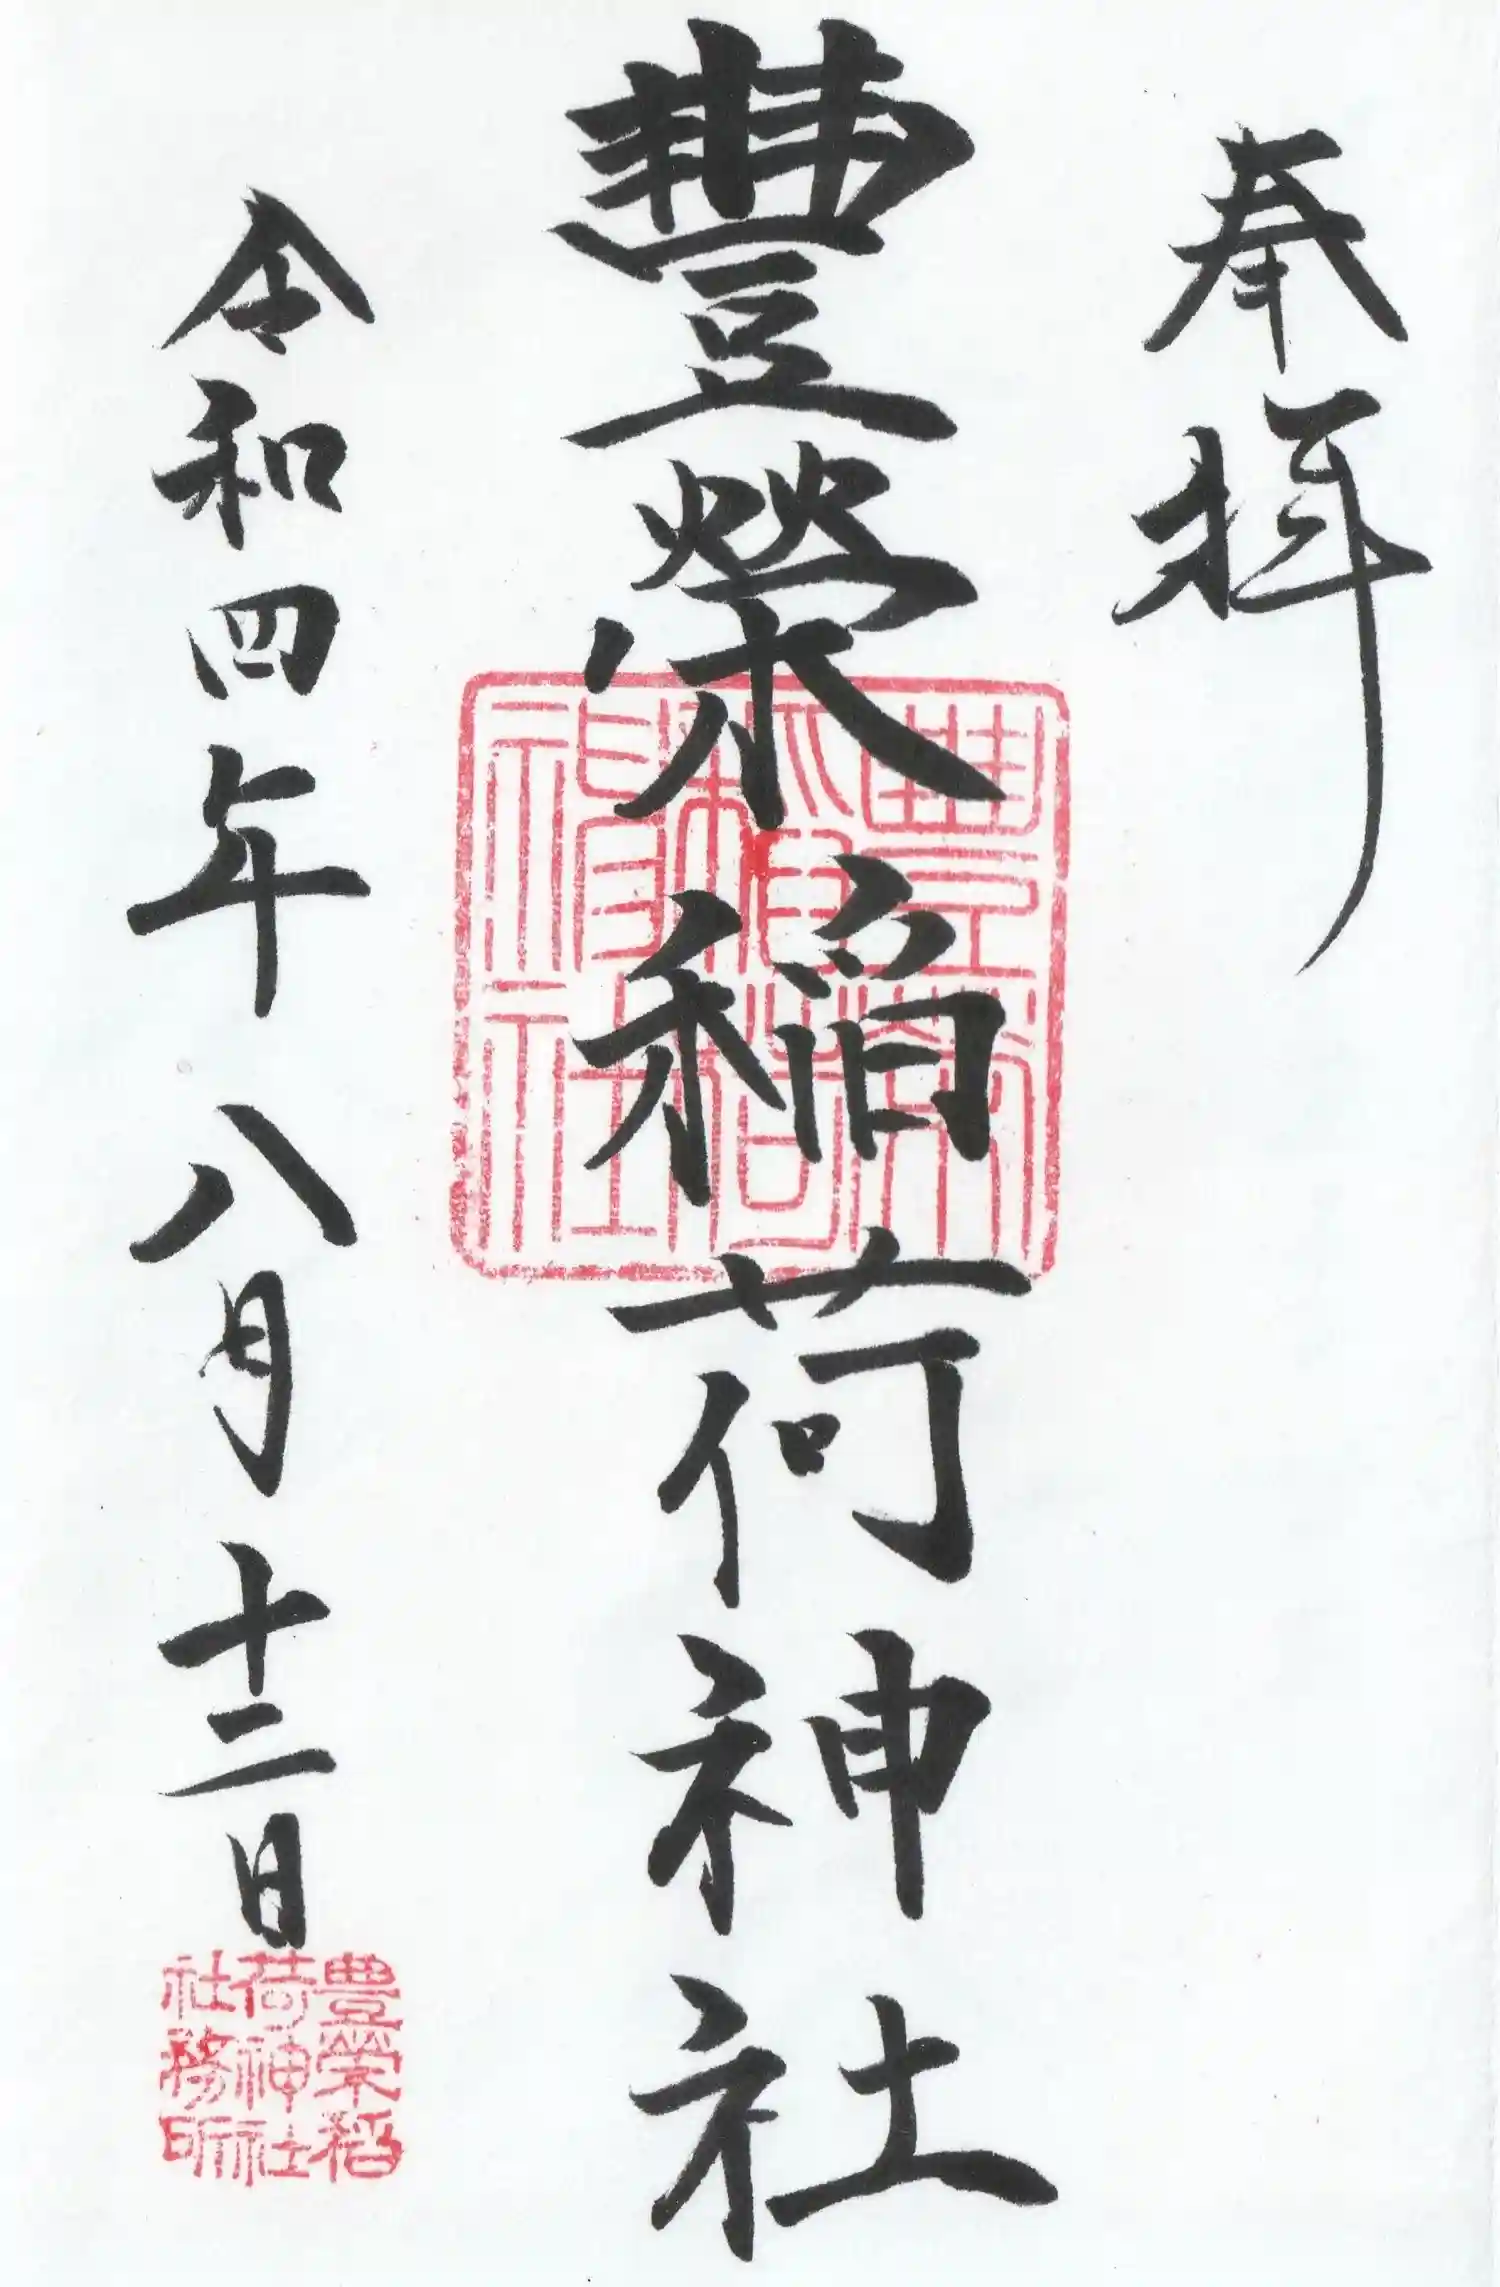 奉拝
豐榮稲荷神社
豐榮
稲荷
神社
令和四年八月十二日
豊榮稲
荷神社
社務所